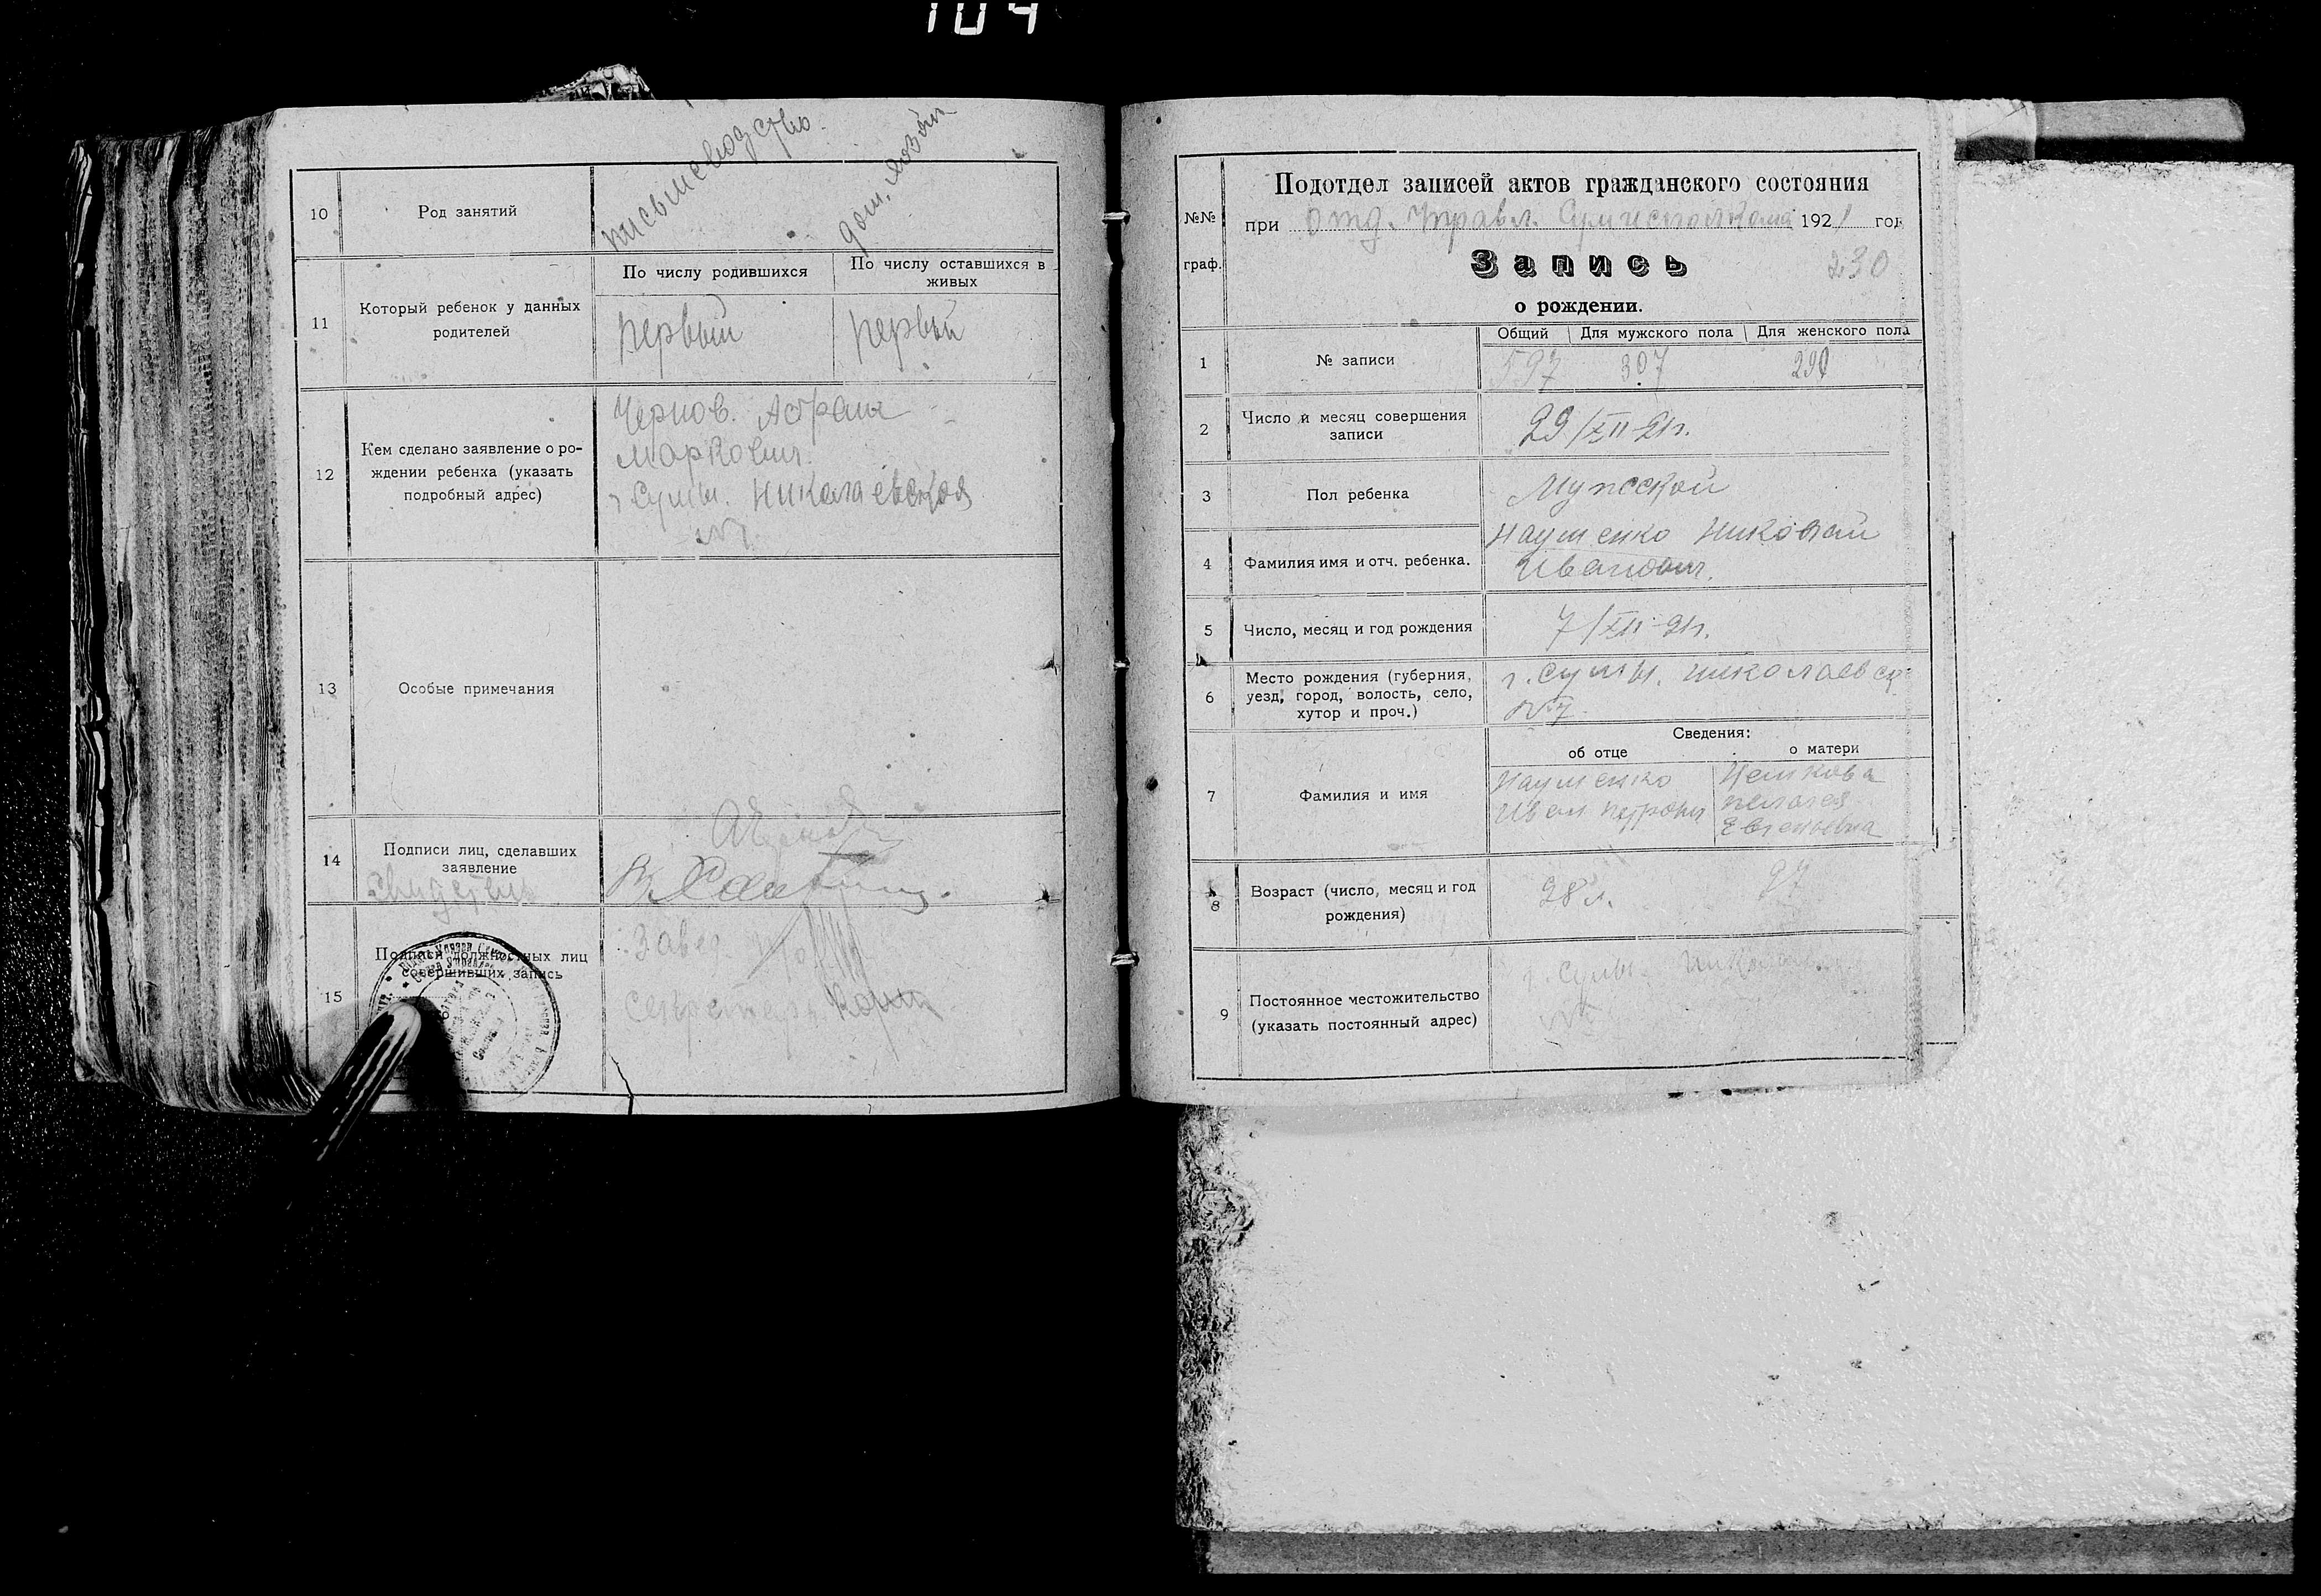 104
письмеводство.
дом. хозяй
10
Род занятий
11
Который ребенок у данных
родителей
По числу родившихся
По числу оставшихся в
живых
первый
первый
12
Кем сделано заявление о ро-
ждении ребенка (указать
подробный адрес)
Чернов. Абрам
Маркович.
г Сумы. Николаевская
№7.
13
Особые примечания
14
Подписи лиц, сделавших
заявление
15
Подписи должностных лиц
совершивших запись
Завед
Секретарь
№№
граф.
Подотдел записей актов гражданского состояния
при отд. Управл. Сумисполкома 1921 год
Запись
230
о рождении.
Общий
Для мужского пола
Для женского пола
1
№ записи
597
307
290
2
Число и месяц совершения
записи
29/XII-21г.
3
Пол ребенка
Мужской
4
Фамилия имя и отч. ребенка.
Науменко Николай
Иванович.
5
Число, месяц и год рождения
7/XII-21г.
6
Место рождения (губерния,
уезд, город, волость, село,
хутор и проч.)
г. Сумы. Николаевск
№7
Сведения:
об отце
о матери
7
Фамилия и имя
Науменко
Иван Петрович
Пелагея
Евгеньевна
8
Возраст (число, месяц и год
рождения)
28 л.
27
9
Постоянное местожительство
(указать постоянный адрес)
г. Сумы Николаев.
№7